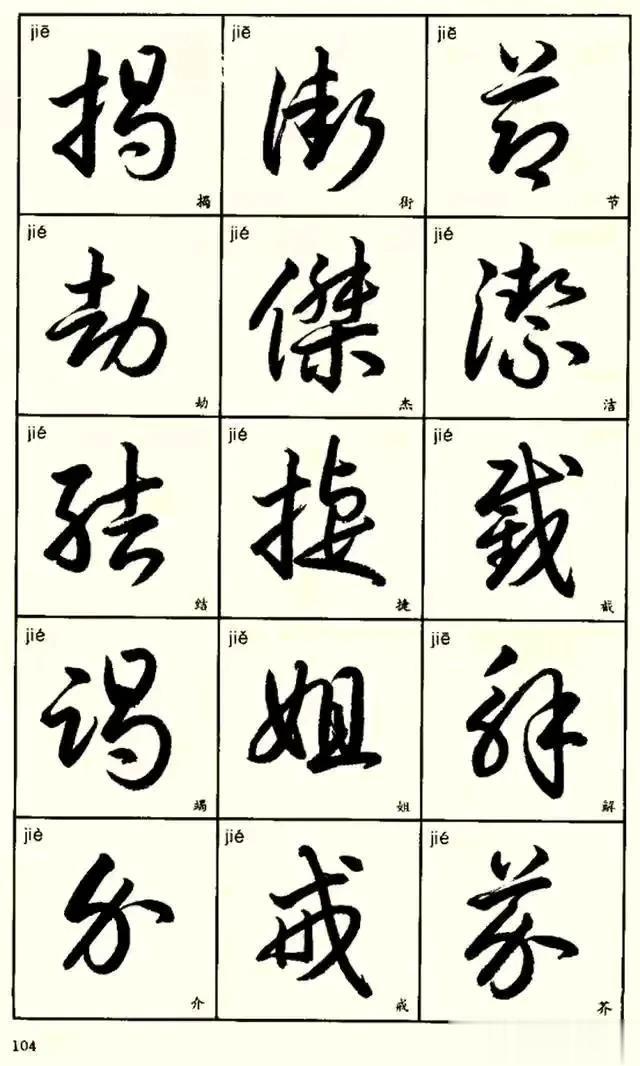 jiē jiē jiē
揭 街 節
揭 街 节
jié jié jié
劫 傑 潔
劫 杰 洁
jié jié jié
結 捷 截
结 捷 截
jié jiě jiě
竭 姐 解
竭 姐 解
jiè jiè jiè
介 戒 芥
介 戒 芥
104